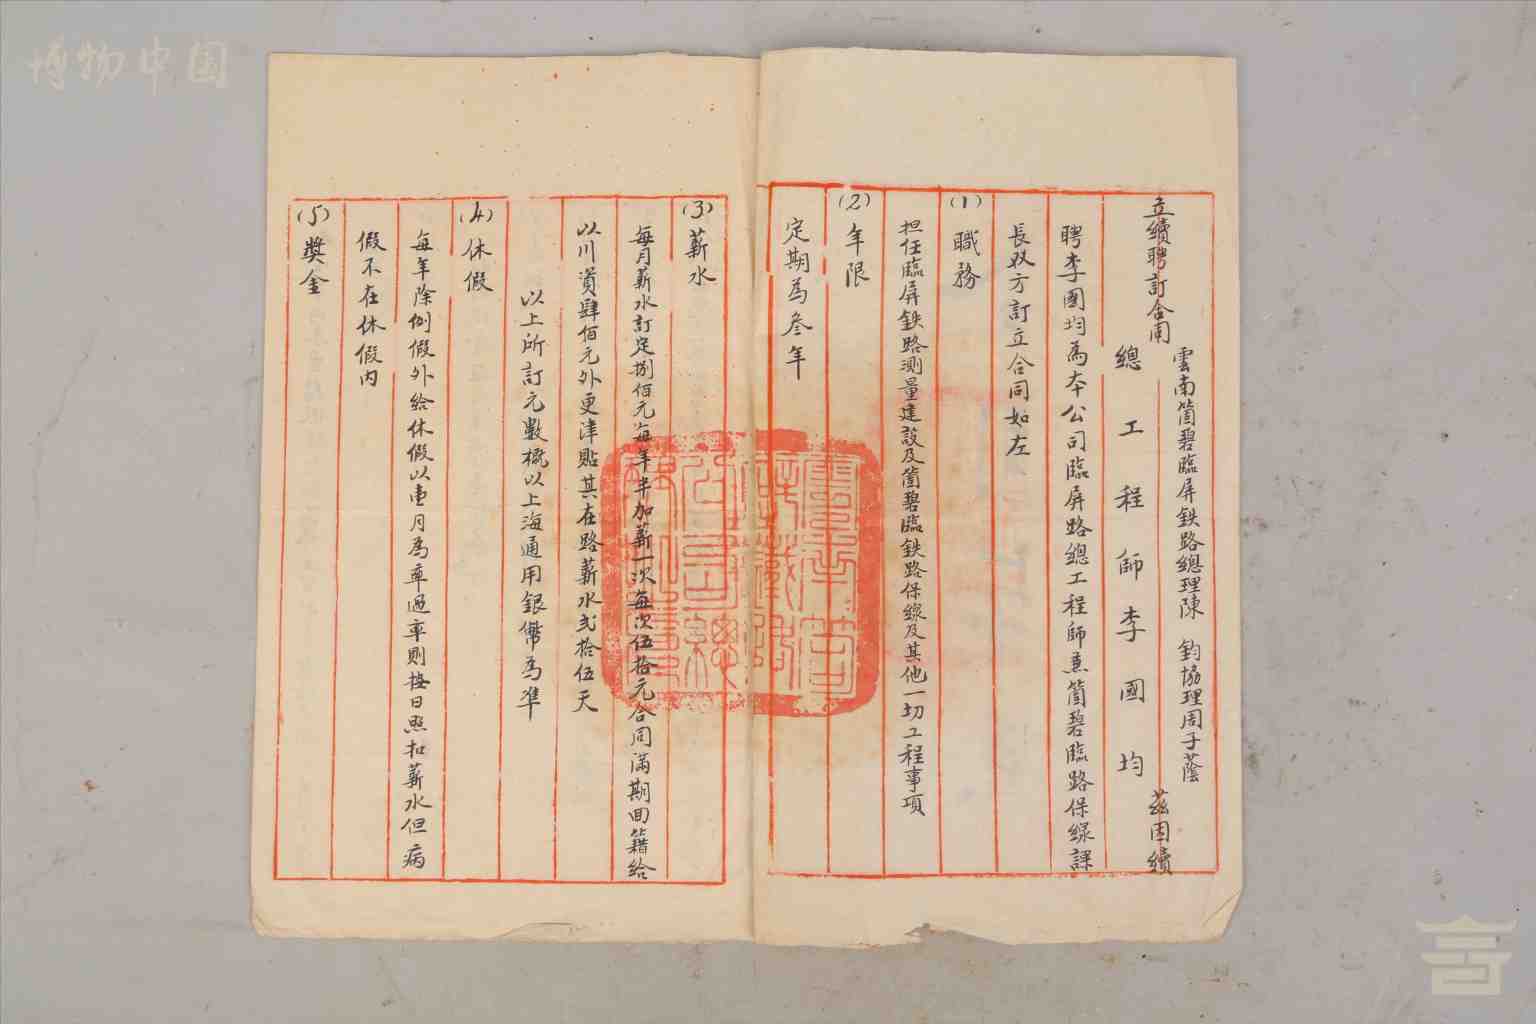 博物中国
立續聘訂合同
雲南箇碧臨屏鉄路總理陳 鈞協理周子蔭
總工程師李國均
茲因續
聘李國均為本公司臨屏路總工程師兼箇碧臨路保線課
長双方訂立合同如左
(1) 職務
担任臨屏鉄路測量建設及箇碧臨鉄路保線及其他一切工程事項
(2) 年限
定期為叁年
(3) 薪水
每月薪水訂定捌佰元每年半加薪一次每次伍拾元合同滿期回籍給
以川資肆佰元外更津貼其在路薪水弍拾伍天
以上所訂元數概以上海通用銀幣為準
(4) 休假
每年除例假外給休假以壹月為率過率則按日照扣薪水但病
假不在休假內
(5) 獎金